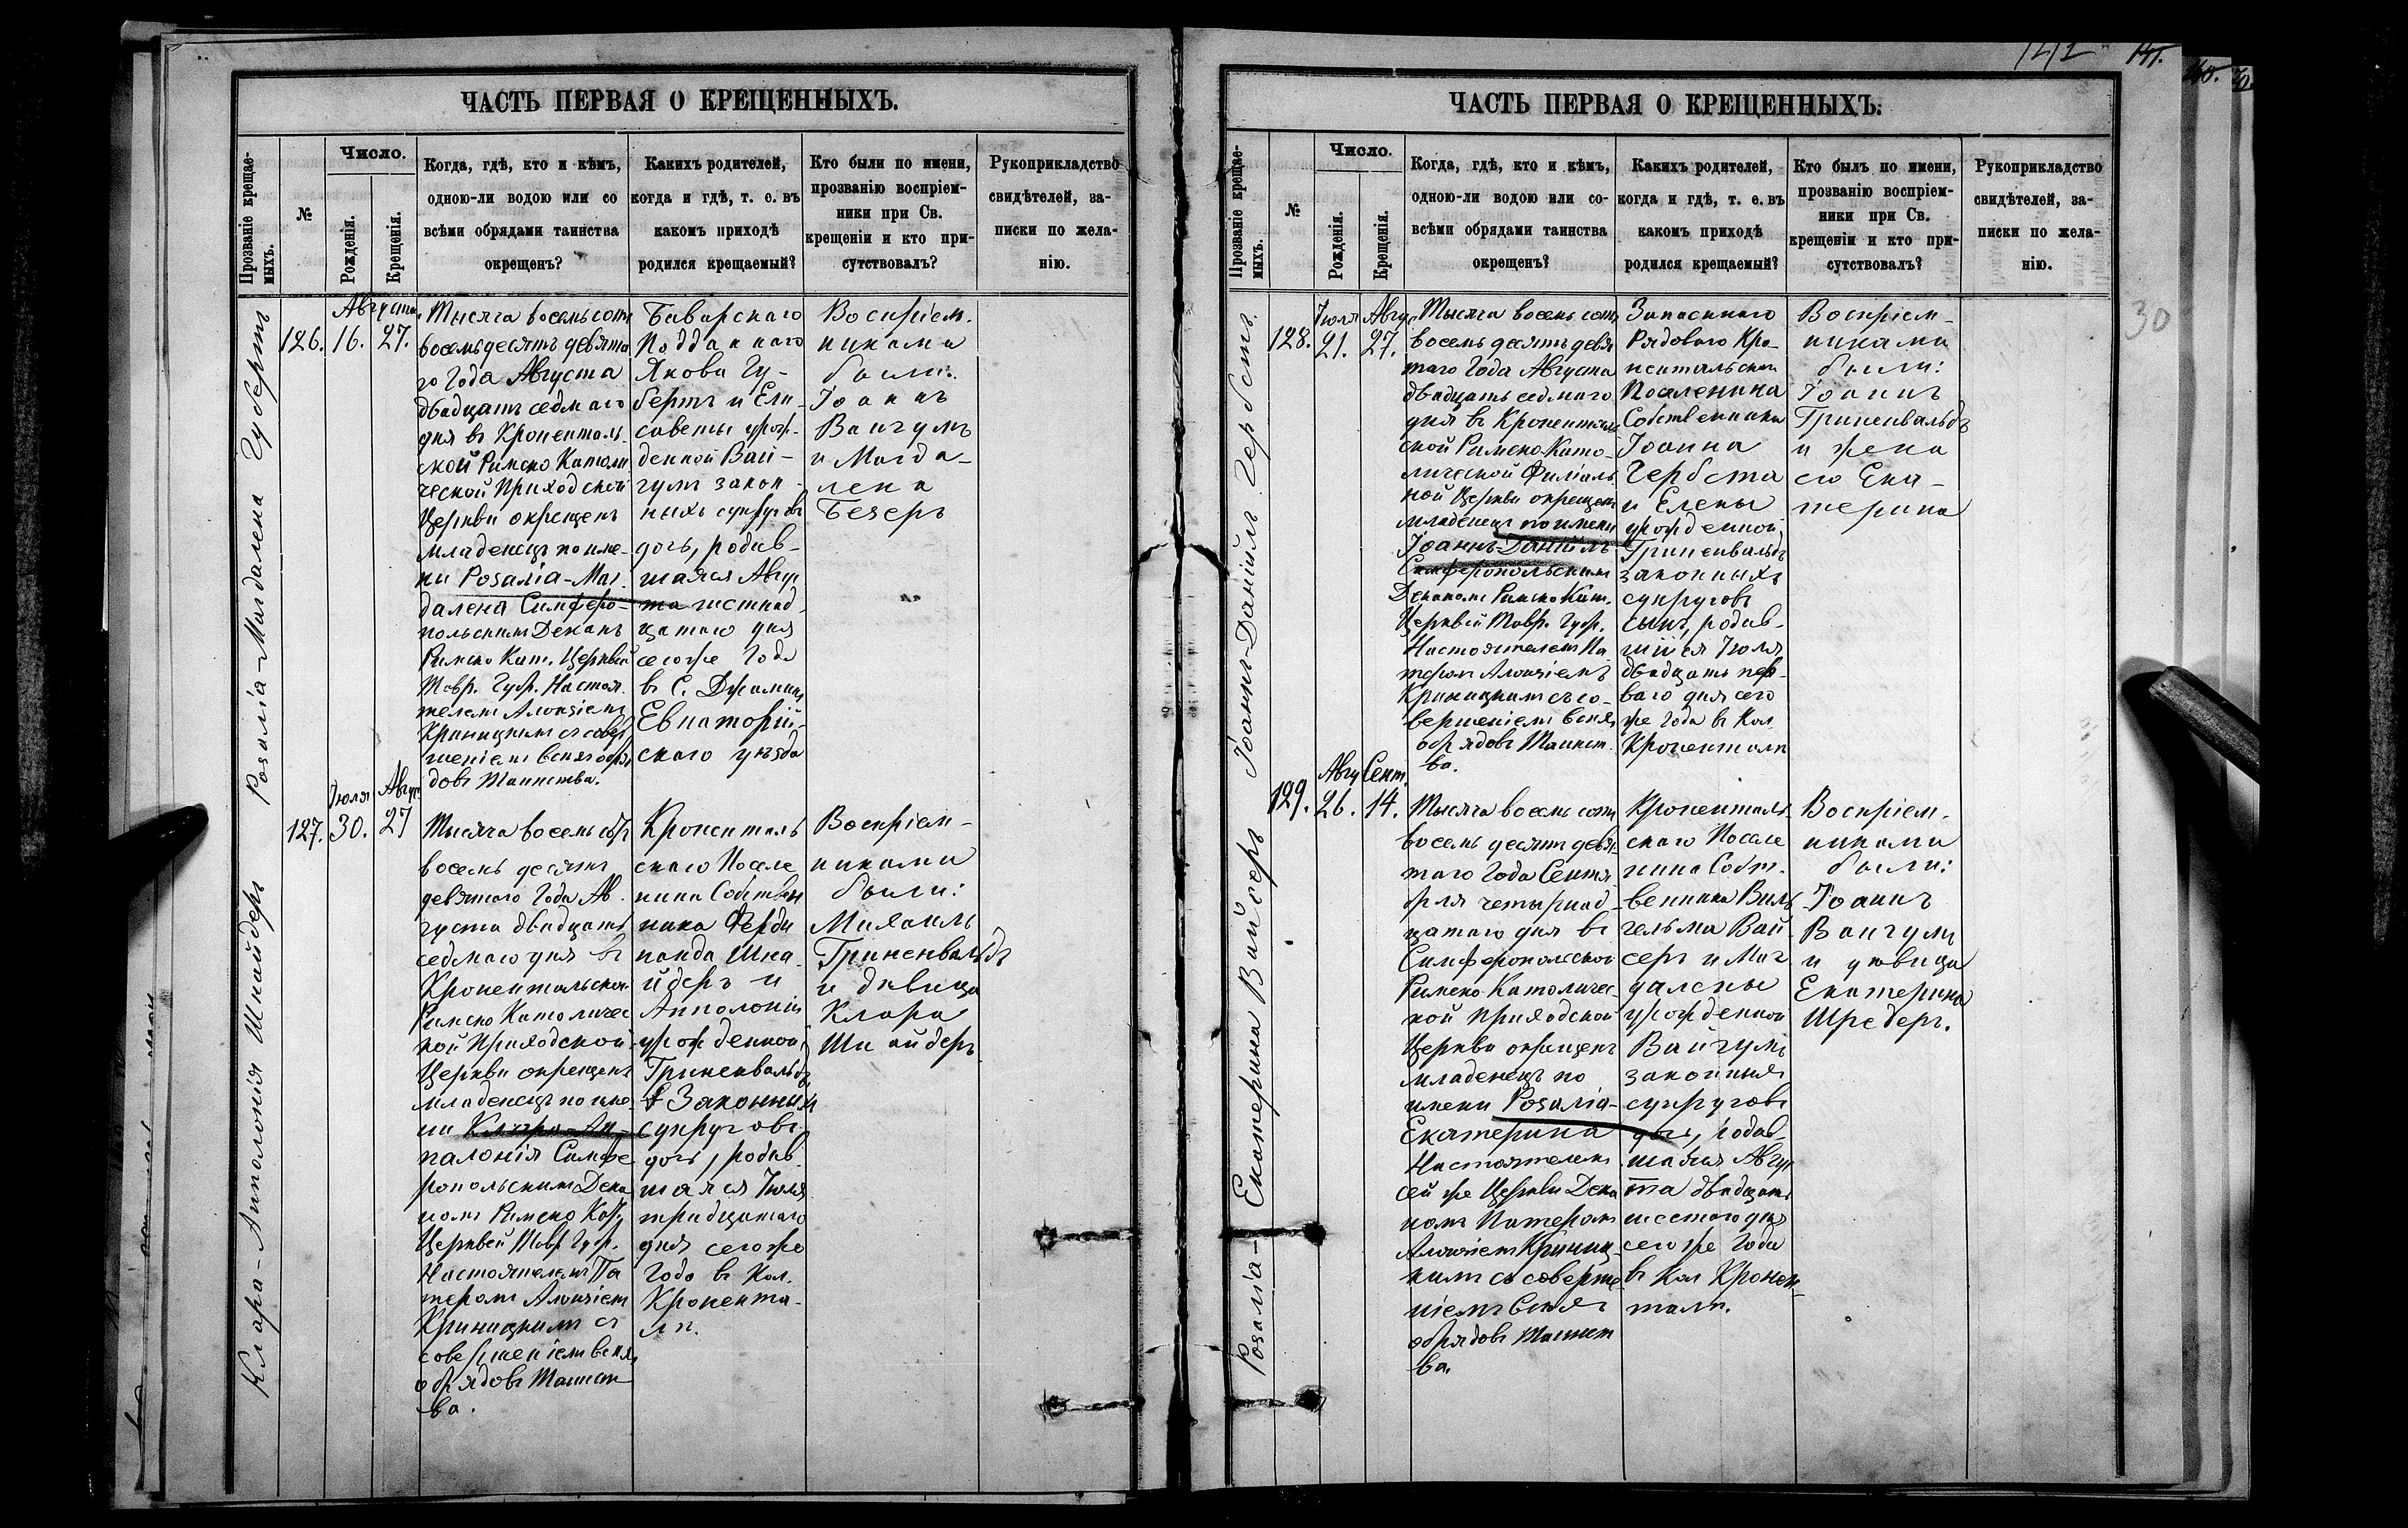 ЧАСТЬ ПЕРВАЯ О КРЕЩЕННЫХЪ.
Прозваніе крещае-
мыхъ.
№
Число.
Рожденія.
Крещенія.
Когда, гдѣ, кто и кѣмъ,
одною-ли водою или со
всѣми обрядами таинства
окрещенъ?
Какихъ родителей,
когда и гдѣ, т. е. въ
какомъ приходѣ
родился крещаемый?
Кто были по имени,
прозванію воспріем-
ники при Св.
крещеніи и кто при-
сутствовалъ?
Рукоприкладство
свидѣтелей, за-
писки по жела-
нію.
Розалія-Магдалена Губертъ
126.
Августа
16. 27.
Тысяча восемьсотъ
восемьдесятъ девята
го Года Августа
двадцать седмаго
дня въ Кроненталь-
ской Римско Католи
ческой Приходской
Церкви окрещенъ
младенецъ по име-
ни Розалія-Маг
далена Симферо-
польскимъ Декан
Римско Кат. Церквей
Тавр. Губ. Настоя
телем Алоизіем
Криницким съ совер
шеніемъ всѣхъ обря
довъ Таинства.
Баварскаго
Подданнаго
Якова Гу-
бертъ и Ели-
саветы урож-
денной Вай-
гумъ закон-
ныхъ супруговъ
дочь, родив-
шаяся Авгу
та шестнад
цатаго дня
сегоже Года
в С. Джамин
Евпаторій-
скаго уѣзда
Воспріем-
никами
были:
Іоаннъ
Вангумъ
и Магда-
лена
Бегеръ
Клара-Апполонія Шнайдеръ
127.
Іюля Авгус
30. 27
Тысяча восемь сот
восемь десятъ
девятаго Года Ав
густа двадцать
седмаго дня въ
Кронентальской
Римско Католичес
кой Приходской
Церкви окрещенъ
младенецъ по име
ни Клара-Ап-
палонія Симфе
ропольским Дека
номъ Римско Кат.
Церквей Тавр Губ.
Настоятелемъ Па
теромъ Алоизіем
Криницкимъ съ
совершеніем всѣх
обрядовъ Таинст
ва.
Кроненталь
скаго Поселе
нина Собствен
ника Ферди
нанда Шна-
йдеръ и
Апполоніи
урожденной
Гриненвальдъ
Законных
супруговъ
дочь, родив
шаяся Іюля
тридцатаго
дня сегоже
Года в Кол.
Кронента-
лѣ.
Воспріем-
никами
были:
Михаилъ
Гриненвальдъ
и дѣвица
Клара
Шнайдеръ
ЧАСТЬ ПЕРВАЯ О КРЕЩЕННЫХЪ.
Прозваніе крещае-
мыхъ.
№
Число.
Рожденія.
Крещенія.
Когда, гдѣ, кто и кѣмъ,
одною-ли водою или со-
всѣми обрядами таинства
окрещенъ?
Какихъ родителей,
когда и гдѣ, т. е. въ
какомъ приходѣ
родился крещаемый?
Кто былъ по имени,
прозванію воспріем-
ники при Св.
крещеніи и кто при-
сутствовалъ?
Рукоприкладство
свидѣтелей, за-
писки по жела-
нію.
30
Іоаннъ-Даніилъ Гербстъ.
128.
Іюля Авгу
21. 27.
Тысяча восемь сотъ
восемь десятъ девя
таго Года Августа
двадцать седмаго
дня въ Кроненталь
ской Римско-Като-
лической Филіаль
ной Церкви окрещенъ
младенецъ по имени
Іоаннъ-Даніилъ
Симферопольским
Деканомъ Римско Кат.
Церквей Тавр. Губ.
Настоятелемъ Па
теромъ Алоизіемъ
Криницкимъ съ со-
вершеніем всѣхъ
обрядовъ Таинст
ва.
Запаснаго
Рядоваго Кро-
нентальскаго
Поселенина
Собственника
Іоанна
Гербста
и Елены
урожденной
Гриненвальдъ
законныхъ
супруговъ
сынъ, родив-
шійся Іюля
двадцать пер-
ваго дня сего
же Года въ Кол
Кроненталѣ
Воспріем-
никами
были:
Іоаннъ
Гриненвальдъ
и жена
его Ека-
терина
Розалія-Екатерина Вайсеръ
129.
Авгу Сент.
26. 14.
Тысяча восемь сотъ
восемь десятъ девя-
таго Года Сентя
бря четырнад-
цатаго дня въ
Симферопольской
Римско Католичес-
кой Приходской
Церкви окрещенъ
младенецъ по
имени Розалія-
Екатерина
Настоятелем
сей же Церкви Дека
номъ Патеромъ
Алоизіем Криниц-
кимъ съ соверше-
ніемъ всѣхъ
обрядовъ Таинст
ва.
Кроненталь-
скаго Поселе
нина Собст-
венника Виль
гельма Вай-
серъ и Маг
далены
урожденной
Вайгумъ
законныхъ
супруговъ
дочь, родив-
шаяся Авгу
ста двадцать
шестаго дня
сегоже Года
въ Кол Кронен-
талѣ.
Воспріем-
никами
были:
Іоаннъ
Вангумъ
и дѣвица
Екатерина
Шредеръ.